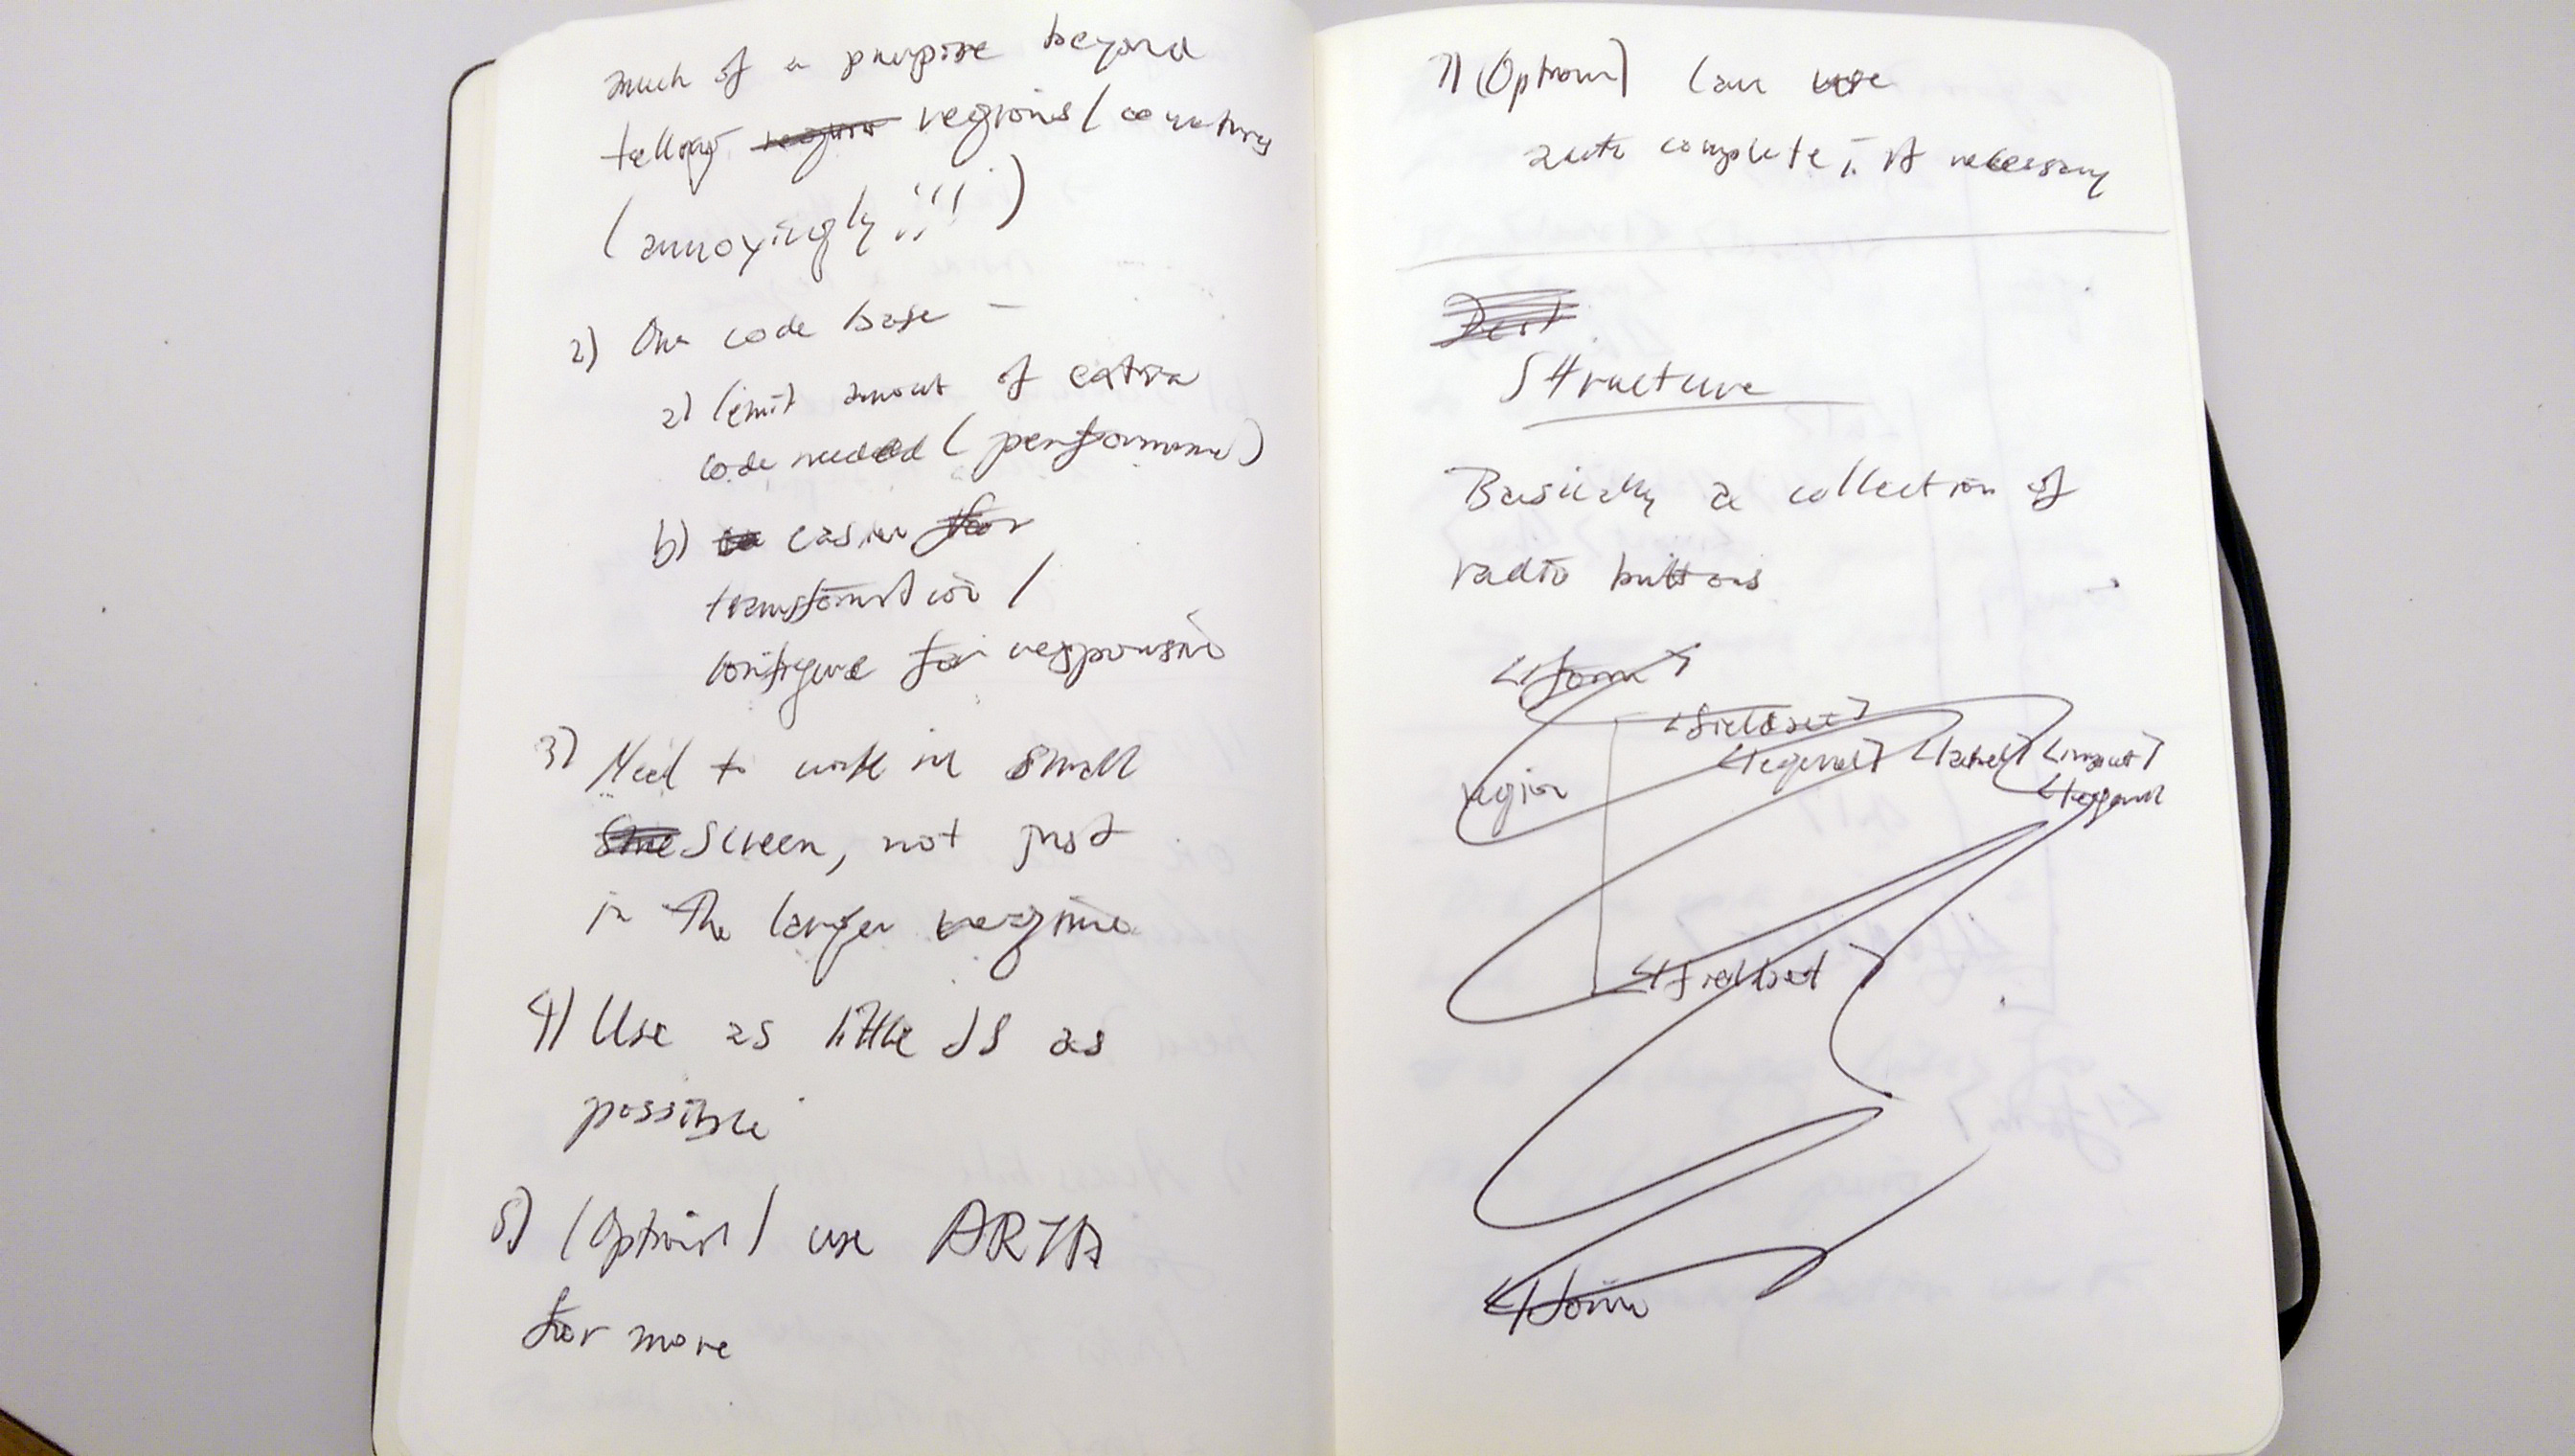 much of a purpose beyond
telling regions / countries
(annoyingly!!!)
2) One code base -
a) limit amout of extra
code needed (performance)
b) easier
transformation /
configure for responsive
3) Need to work in small
screen, not just
in the larger regime
4) Use as little JS as
possible
5) (Option) use ARIA
for more
7) (Option) Can use
auto complete, if necessary
Structure
Basically a collection of
radio buttons
<form>
<fieldset>
<legend> <label> <input>
region
<legend
</fieldset
</form